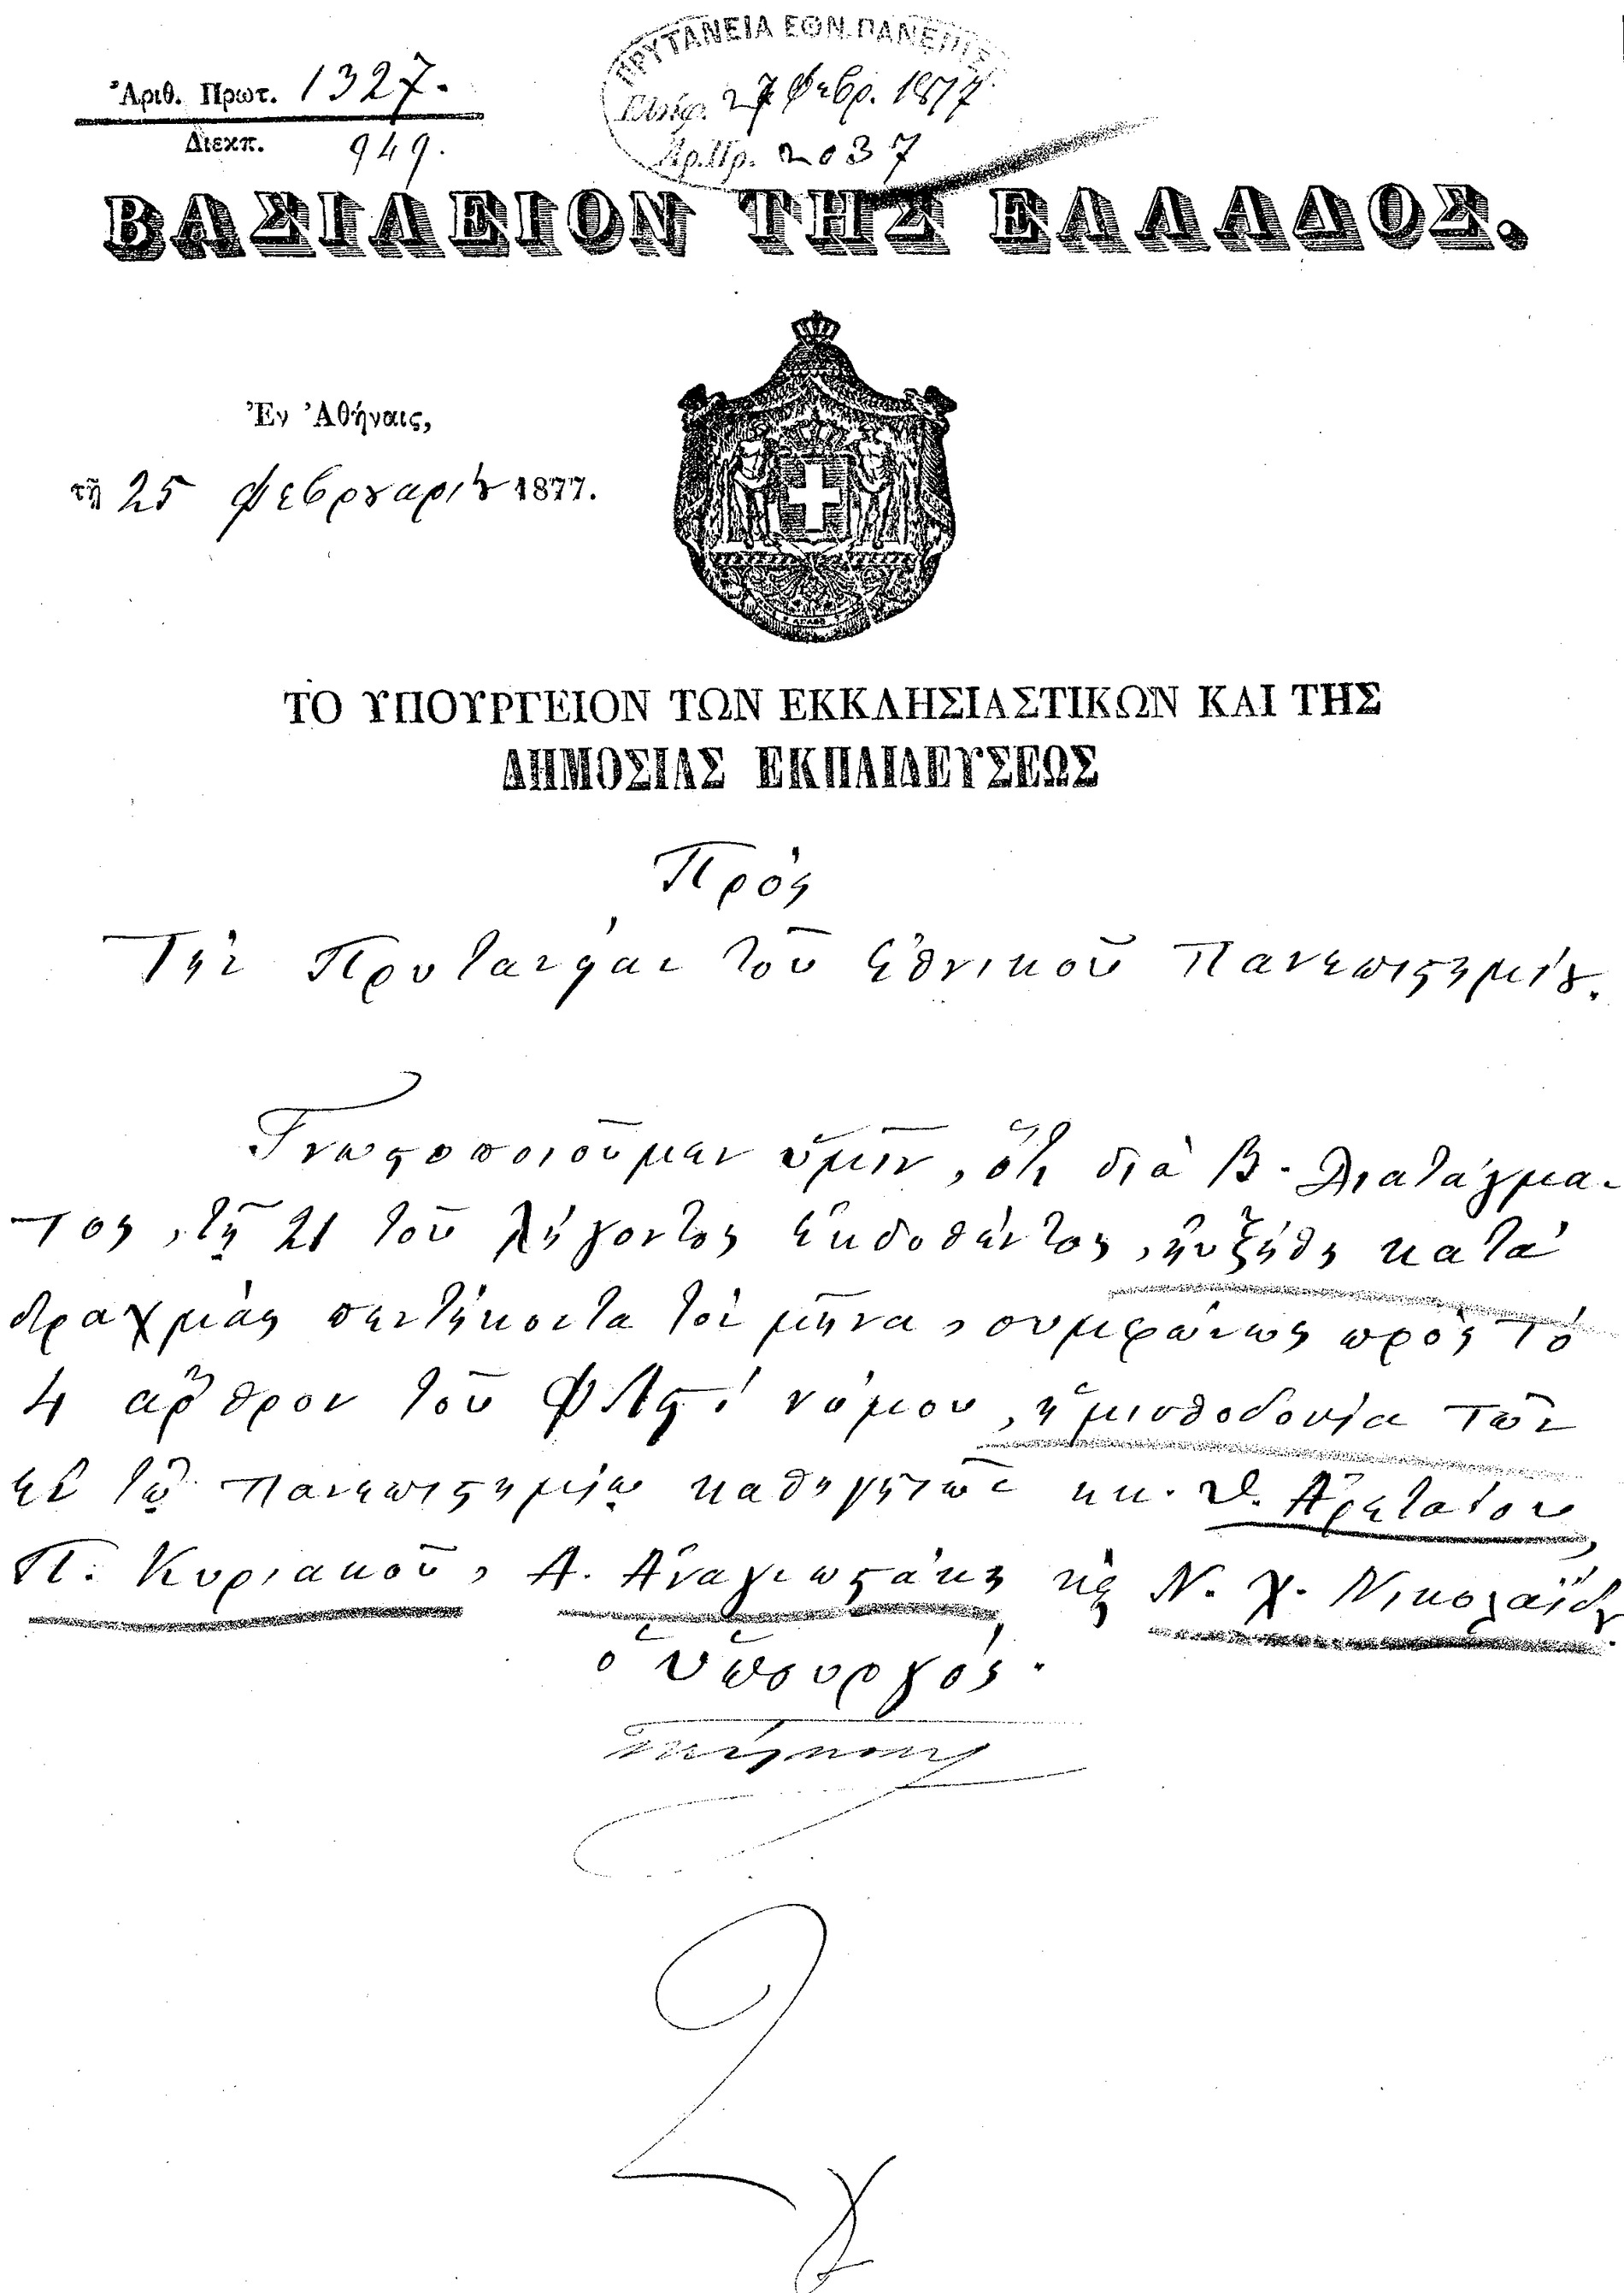 Ἀριθ. Πρωτ. 1327.
Διεκπ. 949.
ΠΡΥΤΑΝΕΙΑ ΕΘΝ. ΠΑΝΕΠΙΣ
27 Φεβρ. 1877
Αρ. Πρ. 2037
ΒΑΣΙΛΕΙΟΝ ΤΗΣ ΕΛΛΑΔΟΣ.
Ἐν Ἀθήναις,
τῇ 25 Φεβρουαρίου 1877.
ΤΟ ΥΠΟΥΡΓΕΙΟΝ ΤΩΝ ΕΚΚΛΗΣΙΑΣΤΙΚΩΝ ΚΑΙ ΤΗΣ
ΔΗΜΟΣΙΑΣ ΕΚΠΑΙΔΕΥΣΕΩΣ
Πρὸς
Τὴν Πρυτανείαν τοῦ Ἐθνικοῦ Πανεπιστημίου.
Γνωστοποιοῦμεν ὑμῖν, ὅτι διὰ Β. Διατάγμα-
τος, τῇ 21 τοῦ λήγοντος ἐκδοθέντος, ηὐξήθη κατὰ
δραχμὰς πεντήκοντα τὸν μῆνα, συμφώνως πρὸς τὸ
4 ἄρθρον τοῦ ΦΛϛ΄ νόμου, ἡ μισθοδοσία τῶν
ἐν τῷ Πανεπιστημίῳ καθηγητῶν κκ. Θ. Ἀρεταίου,
Π. Κυριακοῦ, Α. Ἀναγνωστάκη καὶ Ν. Χ. Νικολαΐδου.
ὁ ὑπουργός.